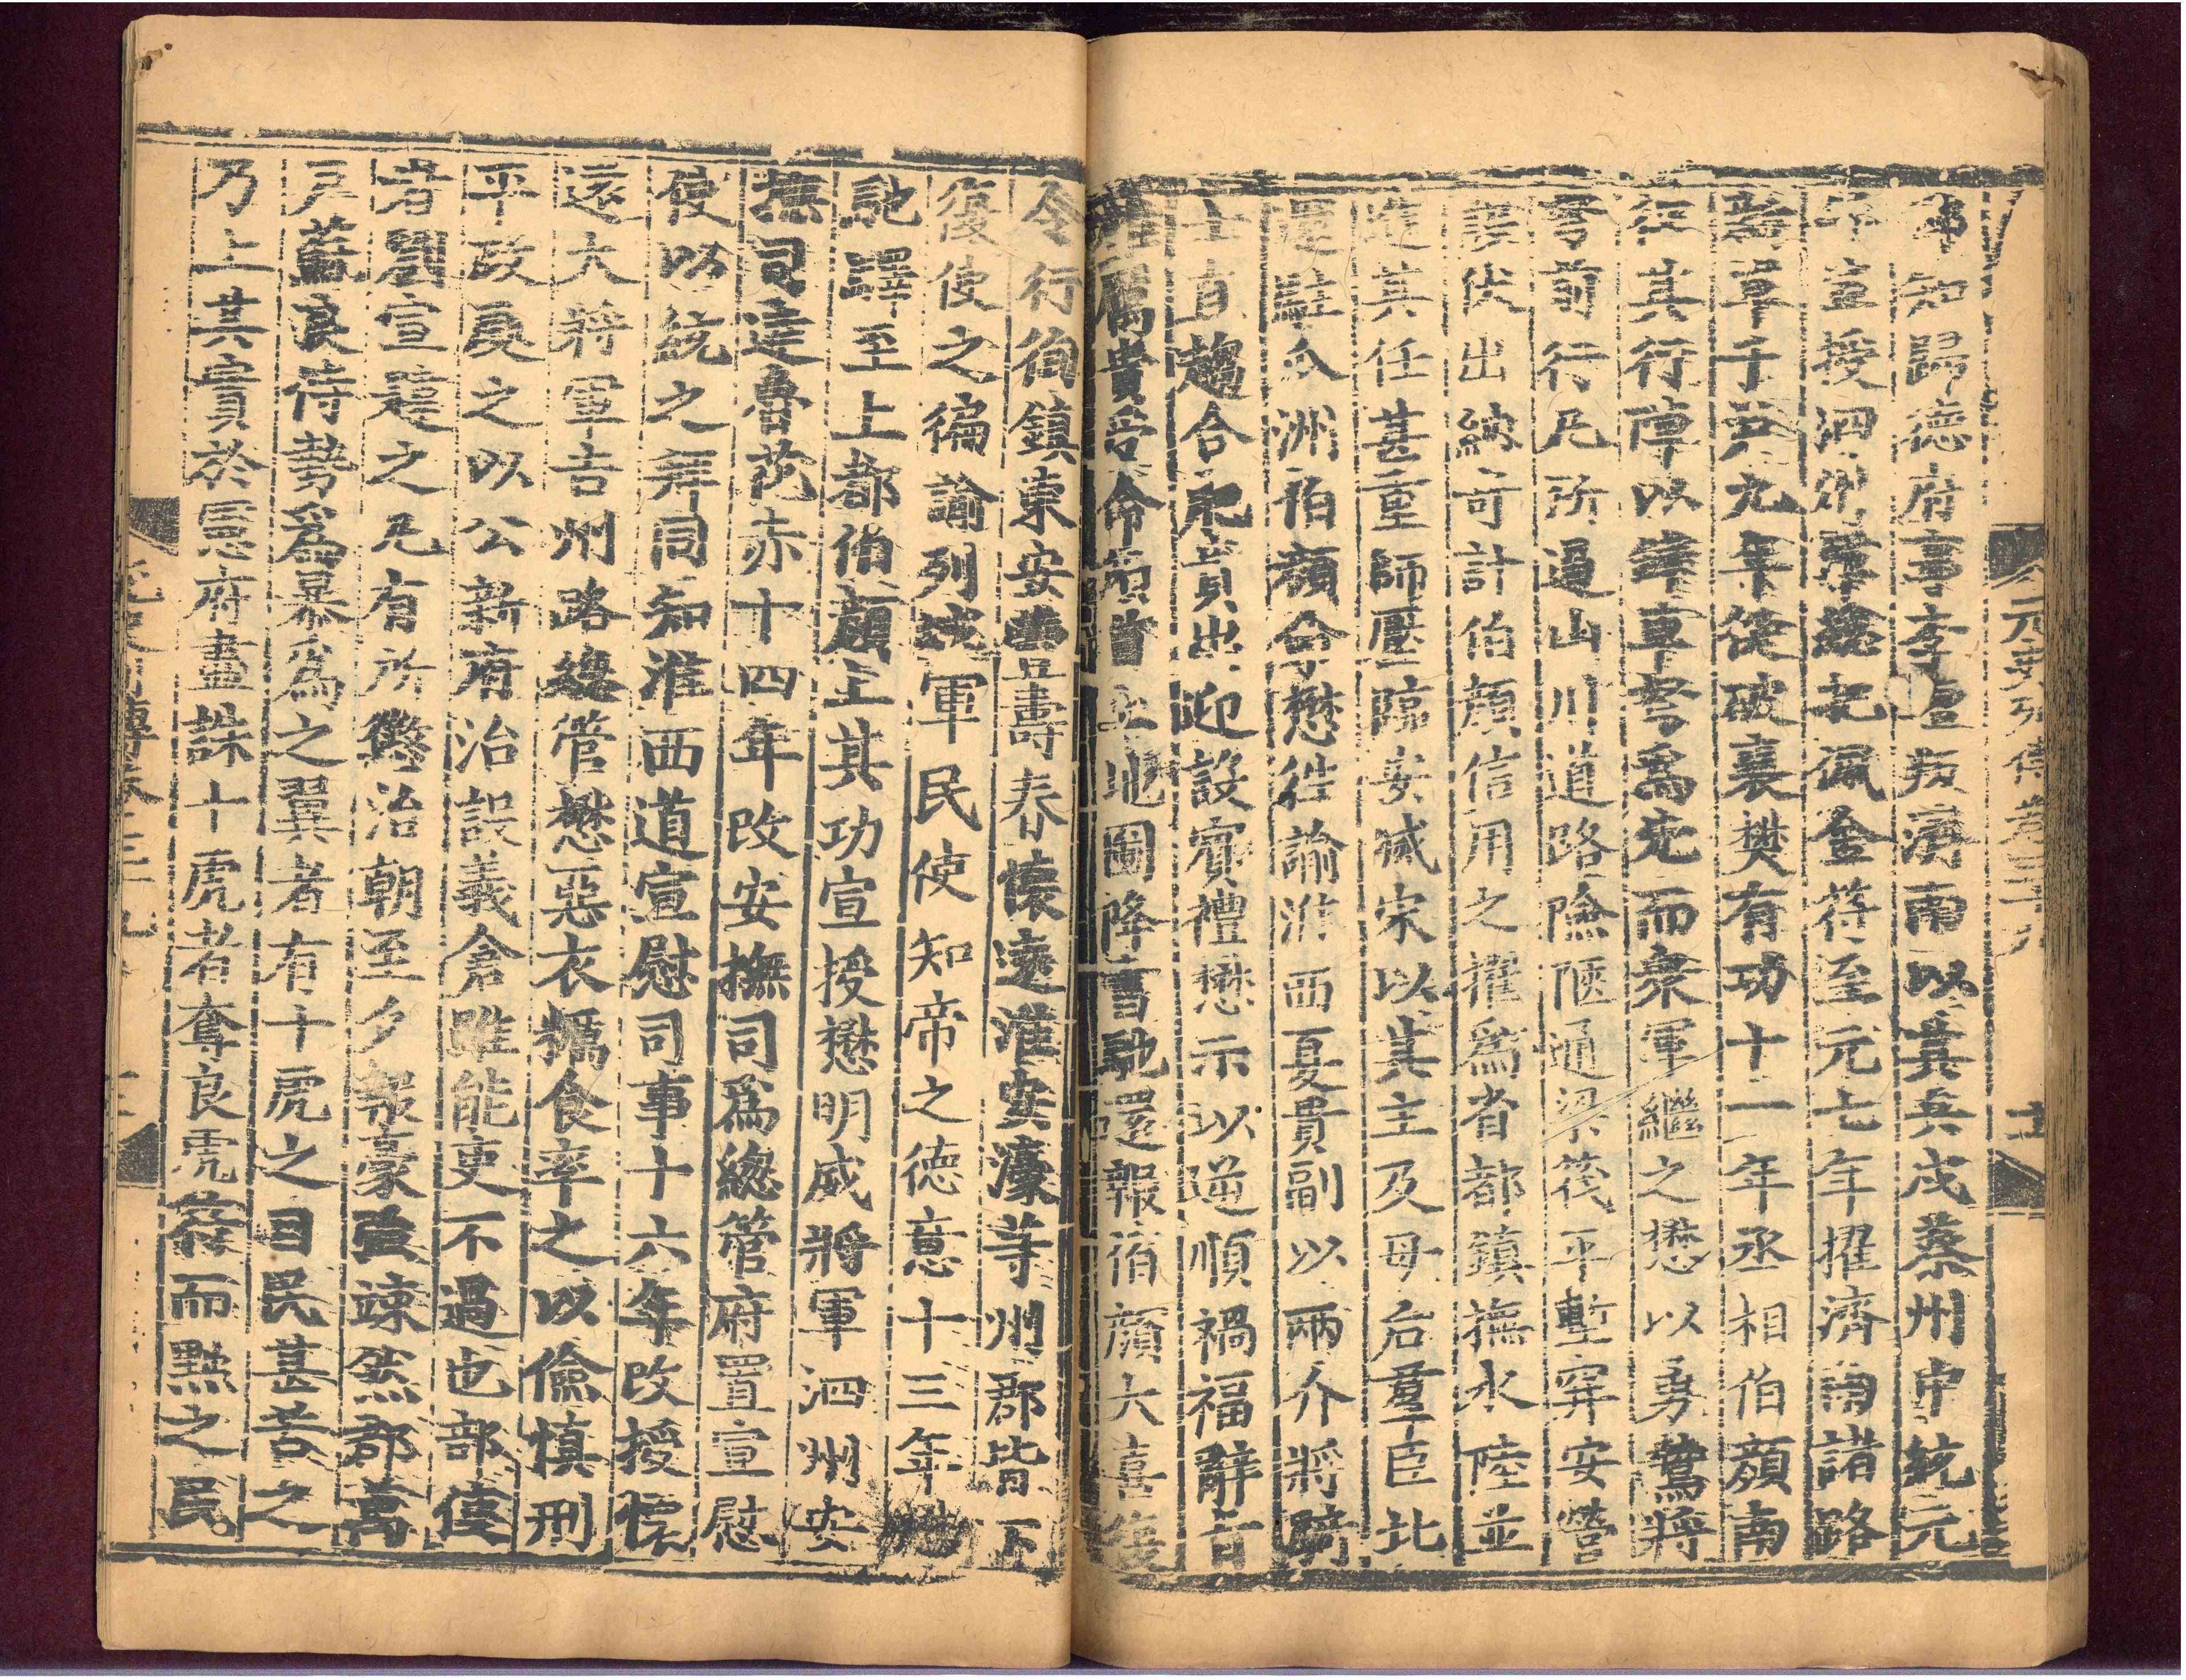 元史列傳卷三十九
帥知歸德府事李璮叛濟南以其兵戍蔡州中統元
年宣授泗州軍總把佩金符至元七年擢濟南諸路
新軍千戸九年從破襄樊有功十一年丞相伯顔南
征其行陣以鐵車弩為先而衆軍繼之懋以勇鷙將
弩前行凡所過山川道路險陋通梁筏平塹穽安營
設伏出納奇計伯顔信用之擢爲省都鎮撫水陸並
進其任甚重師壓臨安滅宋以其主及母后羣臣北
還駐瓜洲伯顔命懋徃諭淮西夏貴副以兩介將騎
士直趨合肥貴出迎設賓禮懋示以逆順禍福辭旨
雄厲貴受命頓首上地圖降書馳還報伯顔大喜復
令行省鎮東安豐壽春懷遠淮安濠等州郡皆下
復使之徧諭列城軍民使知帝之德意十三年
馳驛至上都伯顔上其功宣授懋明威將軍泗州安
撫司達魯花赤十四年改安撫司爲總管府置宣慰
使以統之拜同知淮西道宣慰司事十六年改授懷
遠大將軍吉州路總管懋惡衣糲食率之以儉慎刑
平政戻之以公新府治設義倉雖能吏不過也部使
者劉宣薦之凡有所懲治朝至夕報豪強竦然郡萬
戸葢良侍勢爲暴爲之翼者有十虎之目民甚苦之
乃上其實於憲府盡誅十虎者奪良虎符而黙之民
元史列傳卷三十九